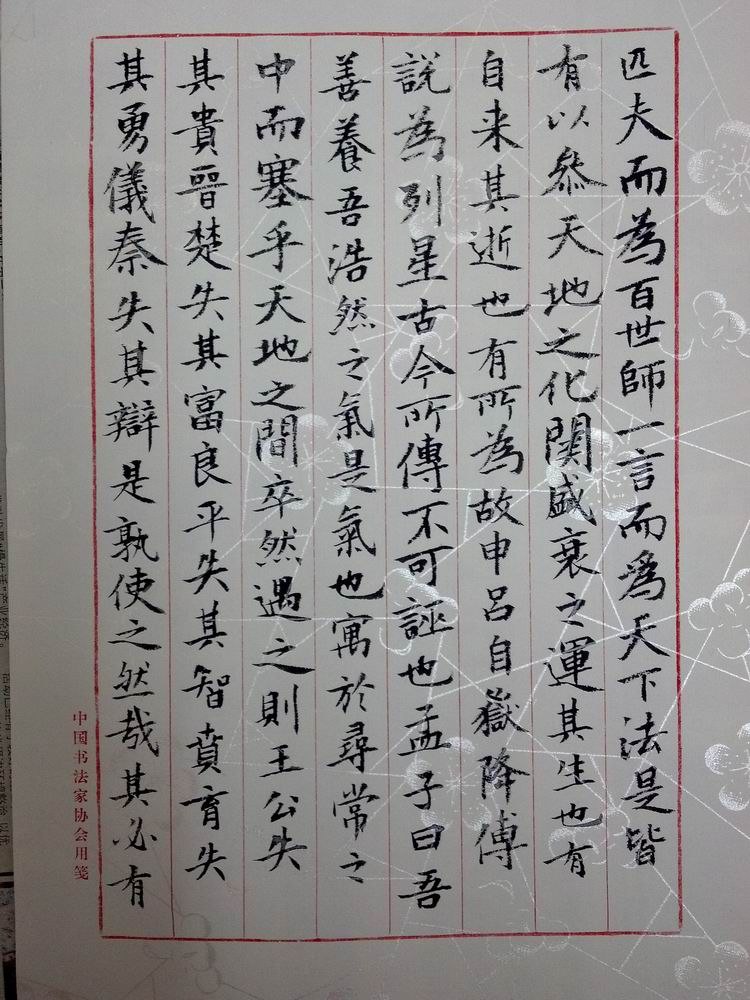 匹夫而為百世師一言而為天下法是皆
有以叅天地之化関盛衰之運其生也有
自来其逝也有所為故申呂自嶽降傅
說為列星古今所傳不可誣也孟子曰吾
善養吾浩然之氣是氣也寓於尋常之
中而塞乎天地之間卒然遇之則王公失
其貴晉楚失其富良平失其智賁育失
其勇儀秦失其辯是孰使之然哉其必有
中国书法家协会用笺